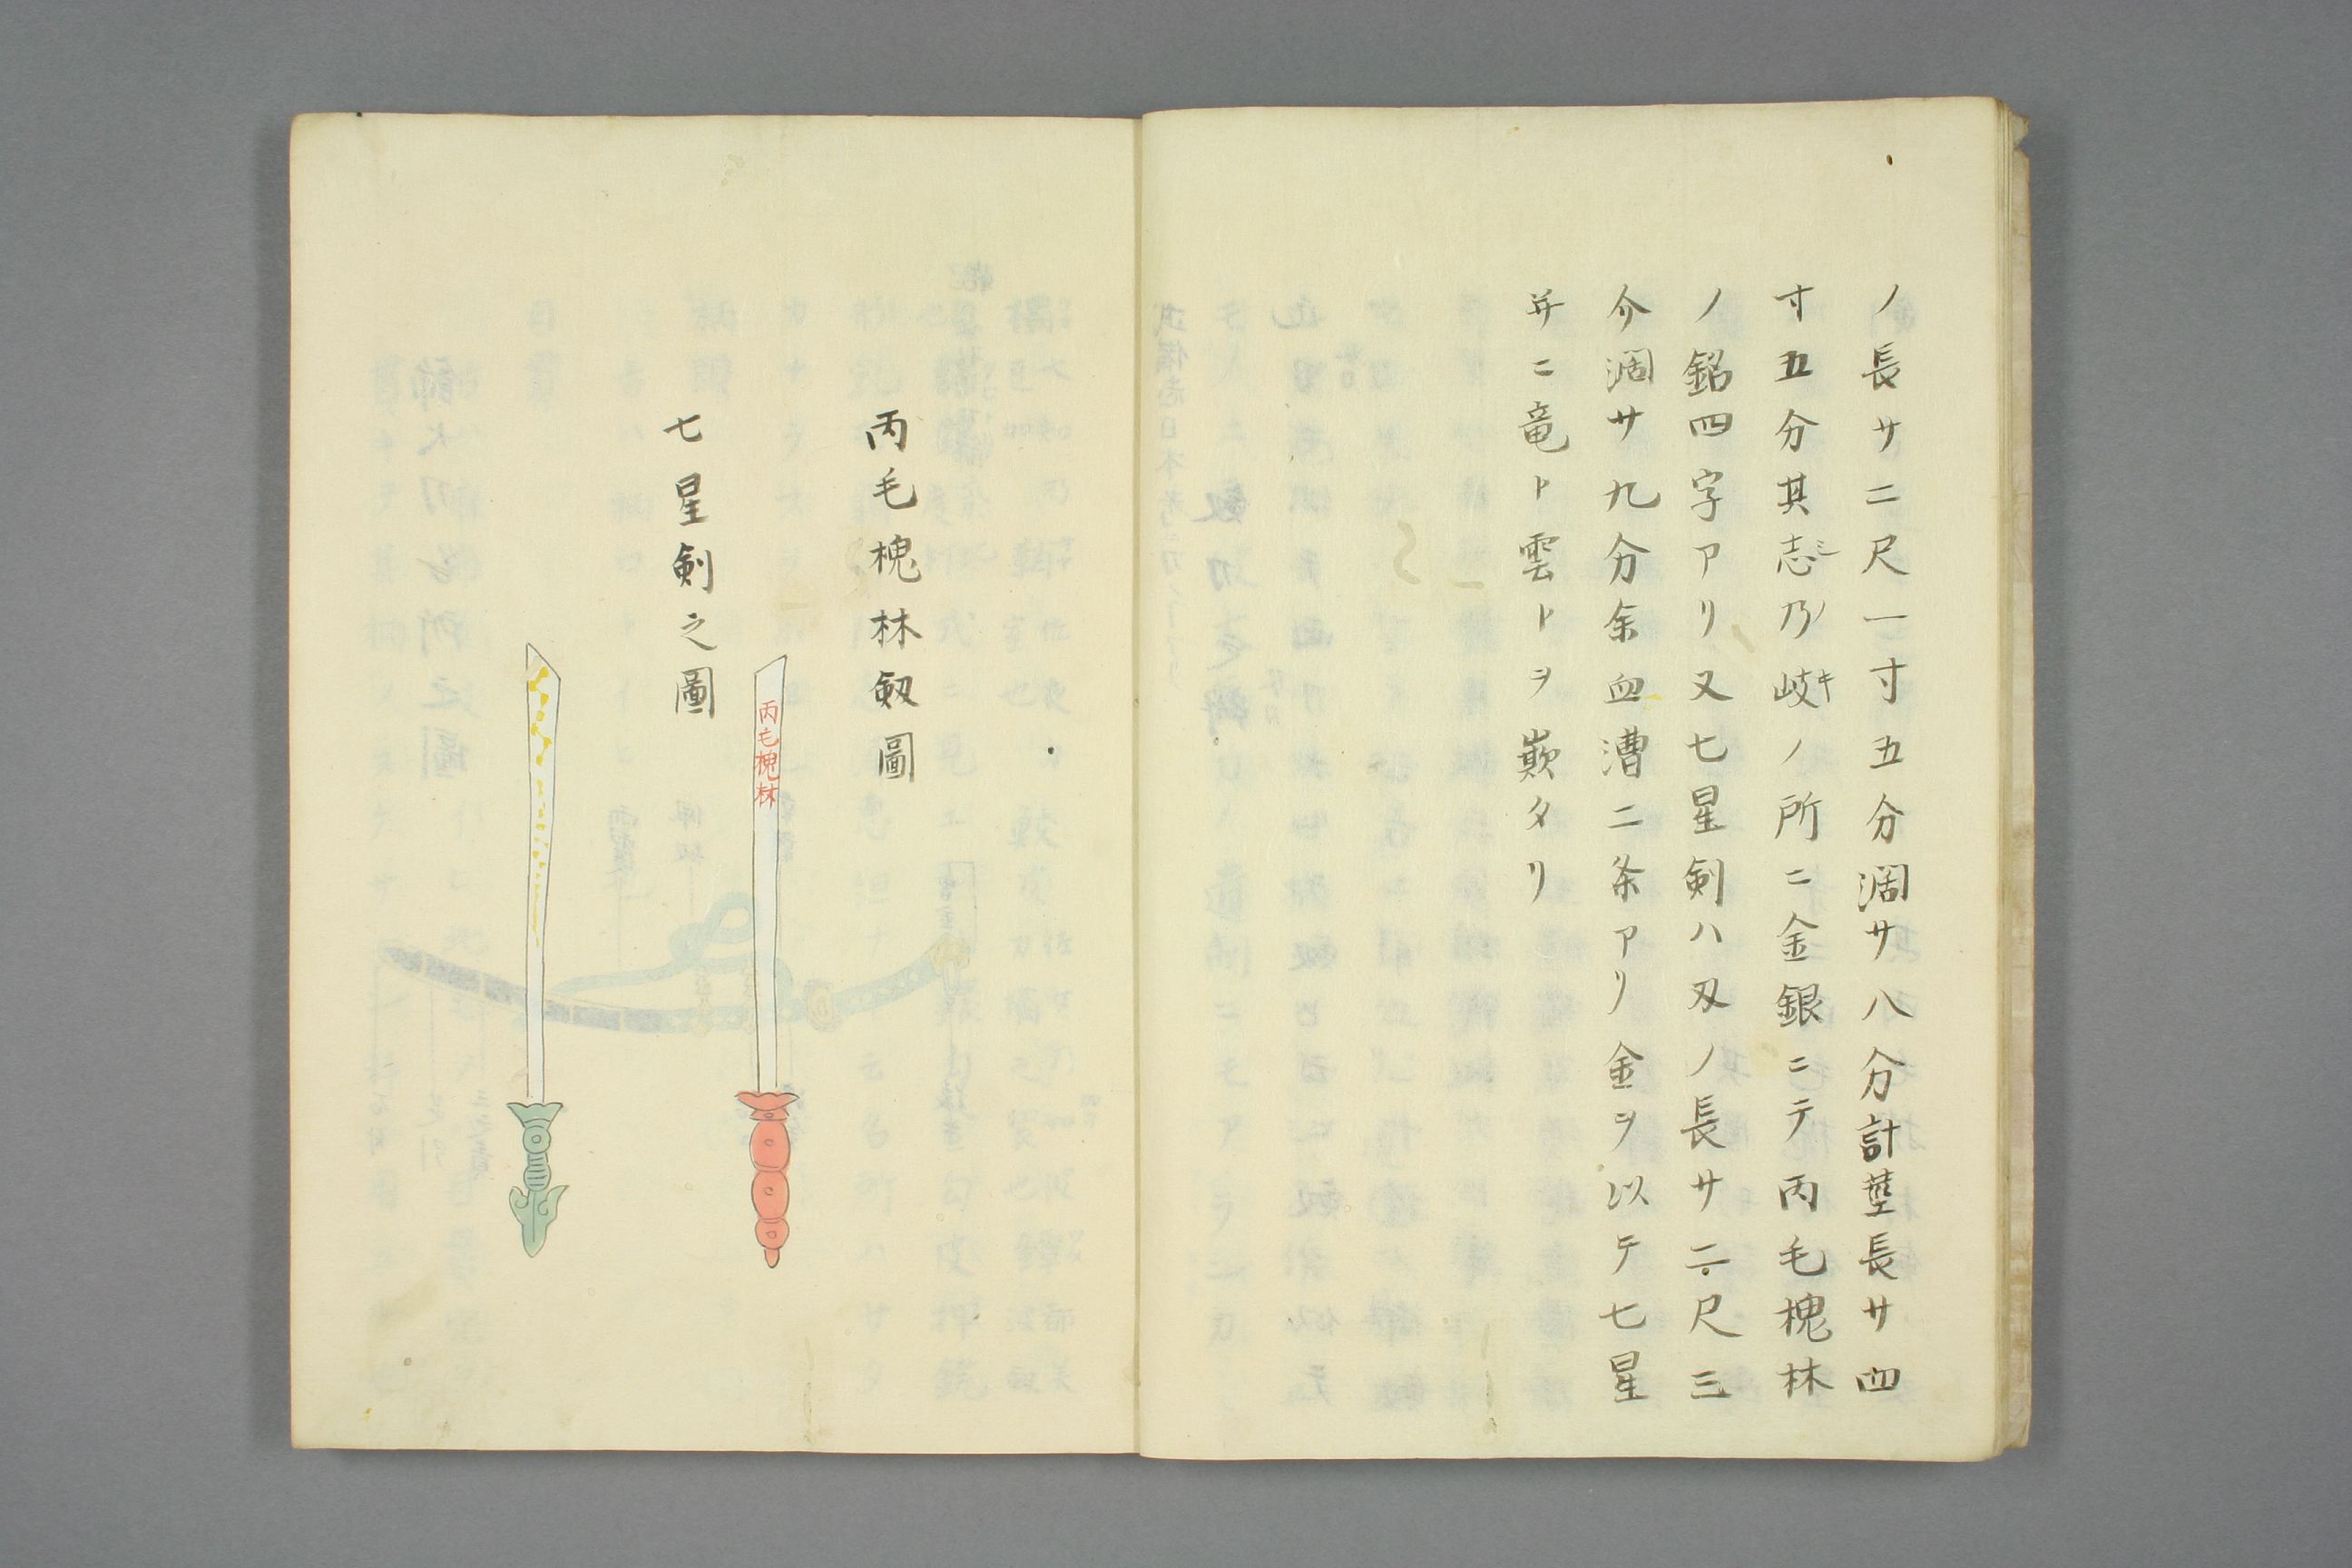 ノ長サ二尺一寸五分濶サ八分計莖長サ四
寸五分其志ミ乃ノ岐キノ所ニ金銀ニテ丙毛槐林
ノ銘四字アリ又七星剣ハ刄ノ長サ二尺三
分濶サ九分余血漕二条アリ金ヲ以テ七星
并ニ竜ト雲トヲ嵌タリ
丙毛槐林剱圖
丙毛槐林
七星剣之圖